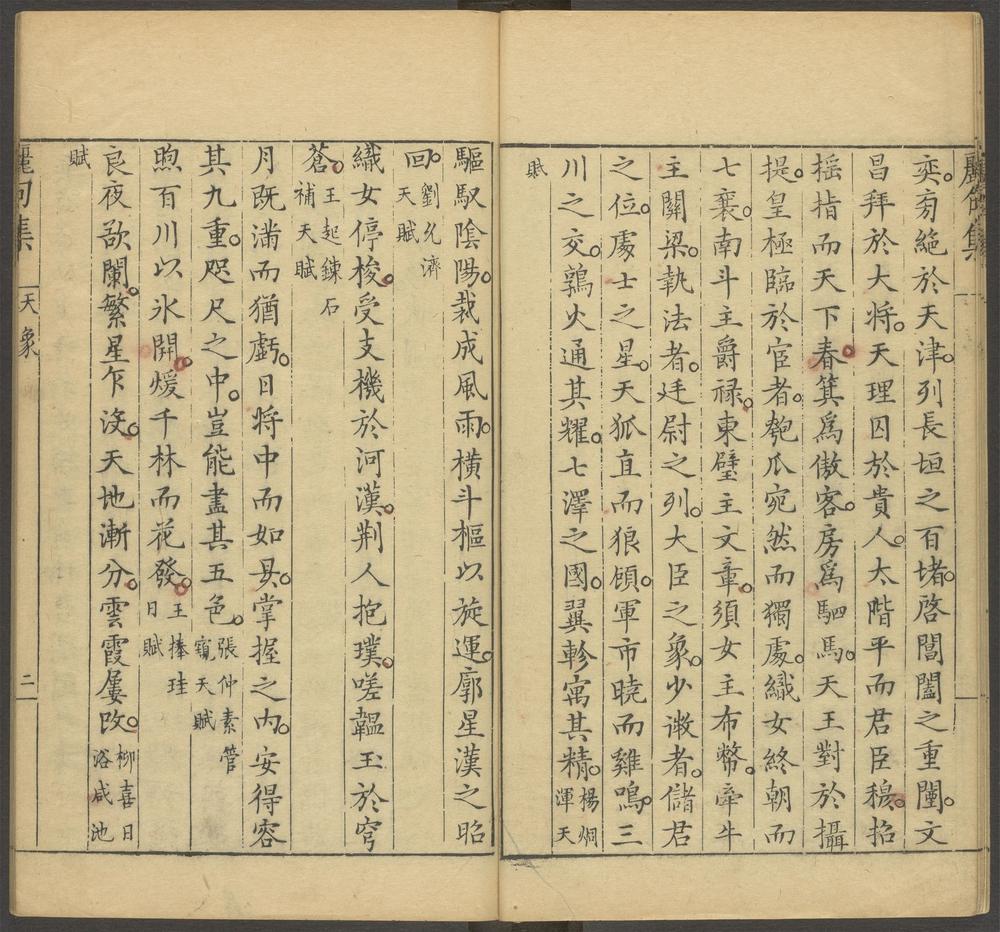 奕旁絕於天津。列長垣之百堵。啓閶闔之重闉。文
昌拜於大將。天理囚於貴人。太階平而君臣穆。招
搖指而天下春。箕爲傲客。房爲駟馬。天王對於攝
提。皇極臨於宦者。匏瓜宛然而獨處。織女終朝而
七襄。南斗主爵祿。東壁主文章。須女主布幣。牽牛
主關梁。執法者。廷尉之列。大臣之象。少微者。儲君
之位。處士之星。天狐直而狼傾。軍市曉而雞鳴。三
川之交。鶉火通其耀。七澤之國。翼軫寓其精。楊烱
渾天
賦
驅馭陰陽。裁成風雨。橫斗樞以旋運。廓星漢之昭
回。劉允濟
天賦
織女停梭。受支機於河漢。荆人抱璞。嗟韞玉於穹
蒼。王起鍊石
補天賦
月既滿而猶虧。日將中而如昃。掌握之内。安得容
其九重。咫尺之中。豈能盡其五色。張仲素管
窺天賦
煦百川以氷開。煖千林而花發。王捧珪
日賦
良夜欲闌。繁星乍沒。天地漸分。雲霞屢改。柳喜日
浴咸池
賦
天象
二